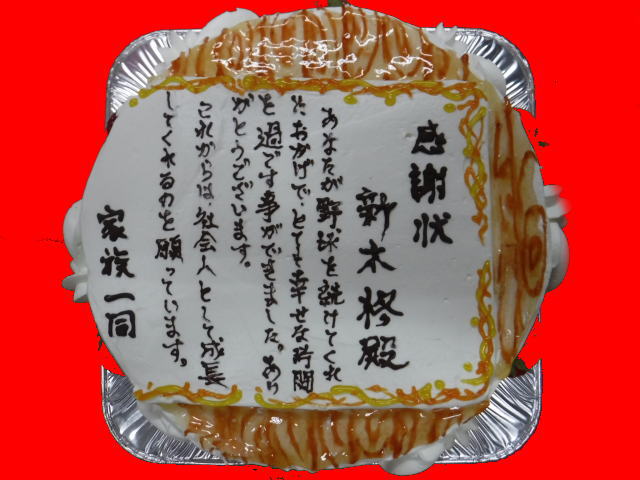 感謝状
新木柊殿
あなたが野球を続けてくれ
たおかげで、とても幸せな時間
を過ごす事ができました。あり
がとうございます。
これからは、社会人として成長
してくれるのを願っています。
家族一同